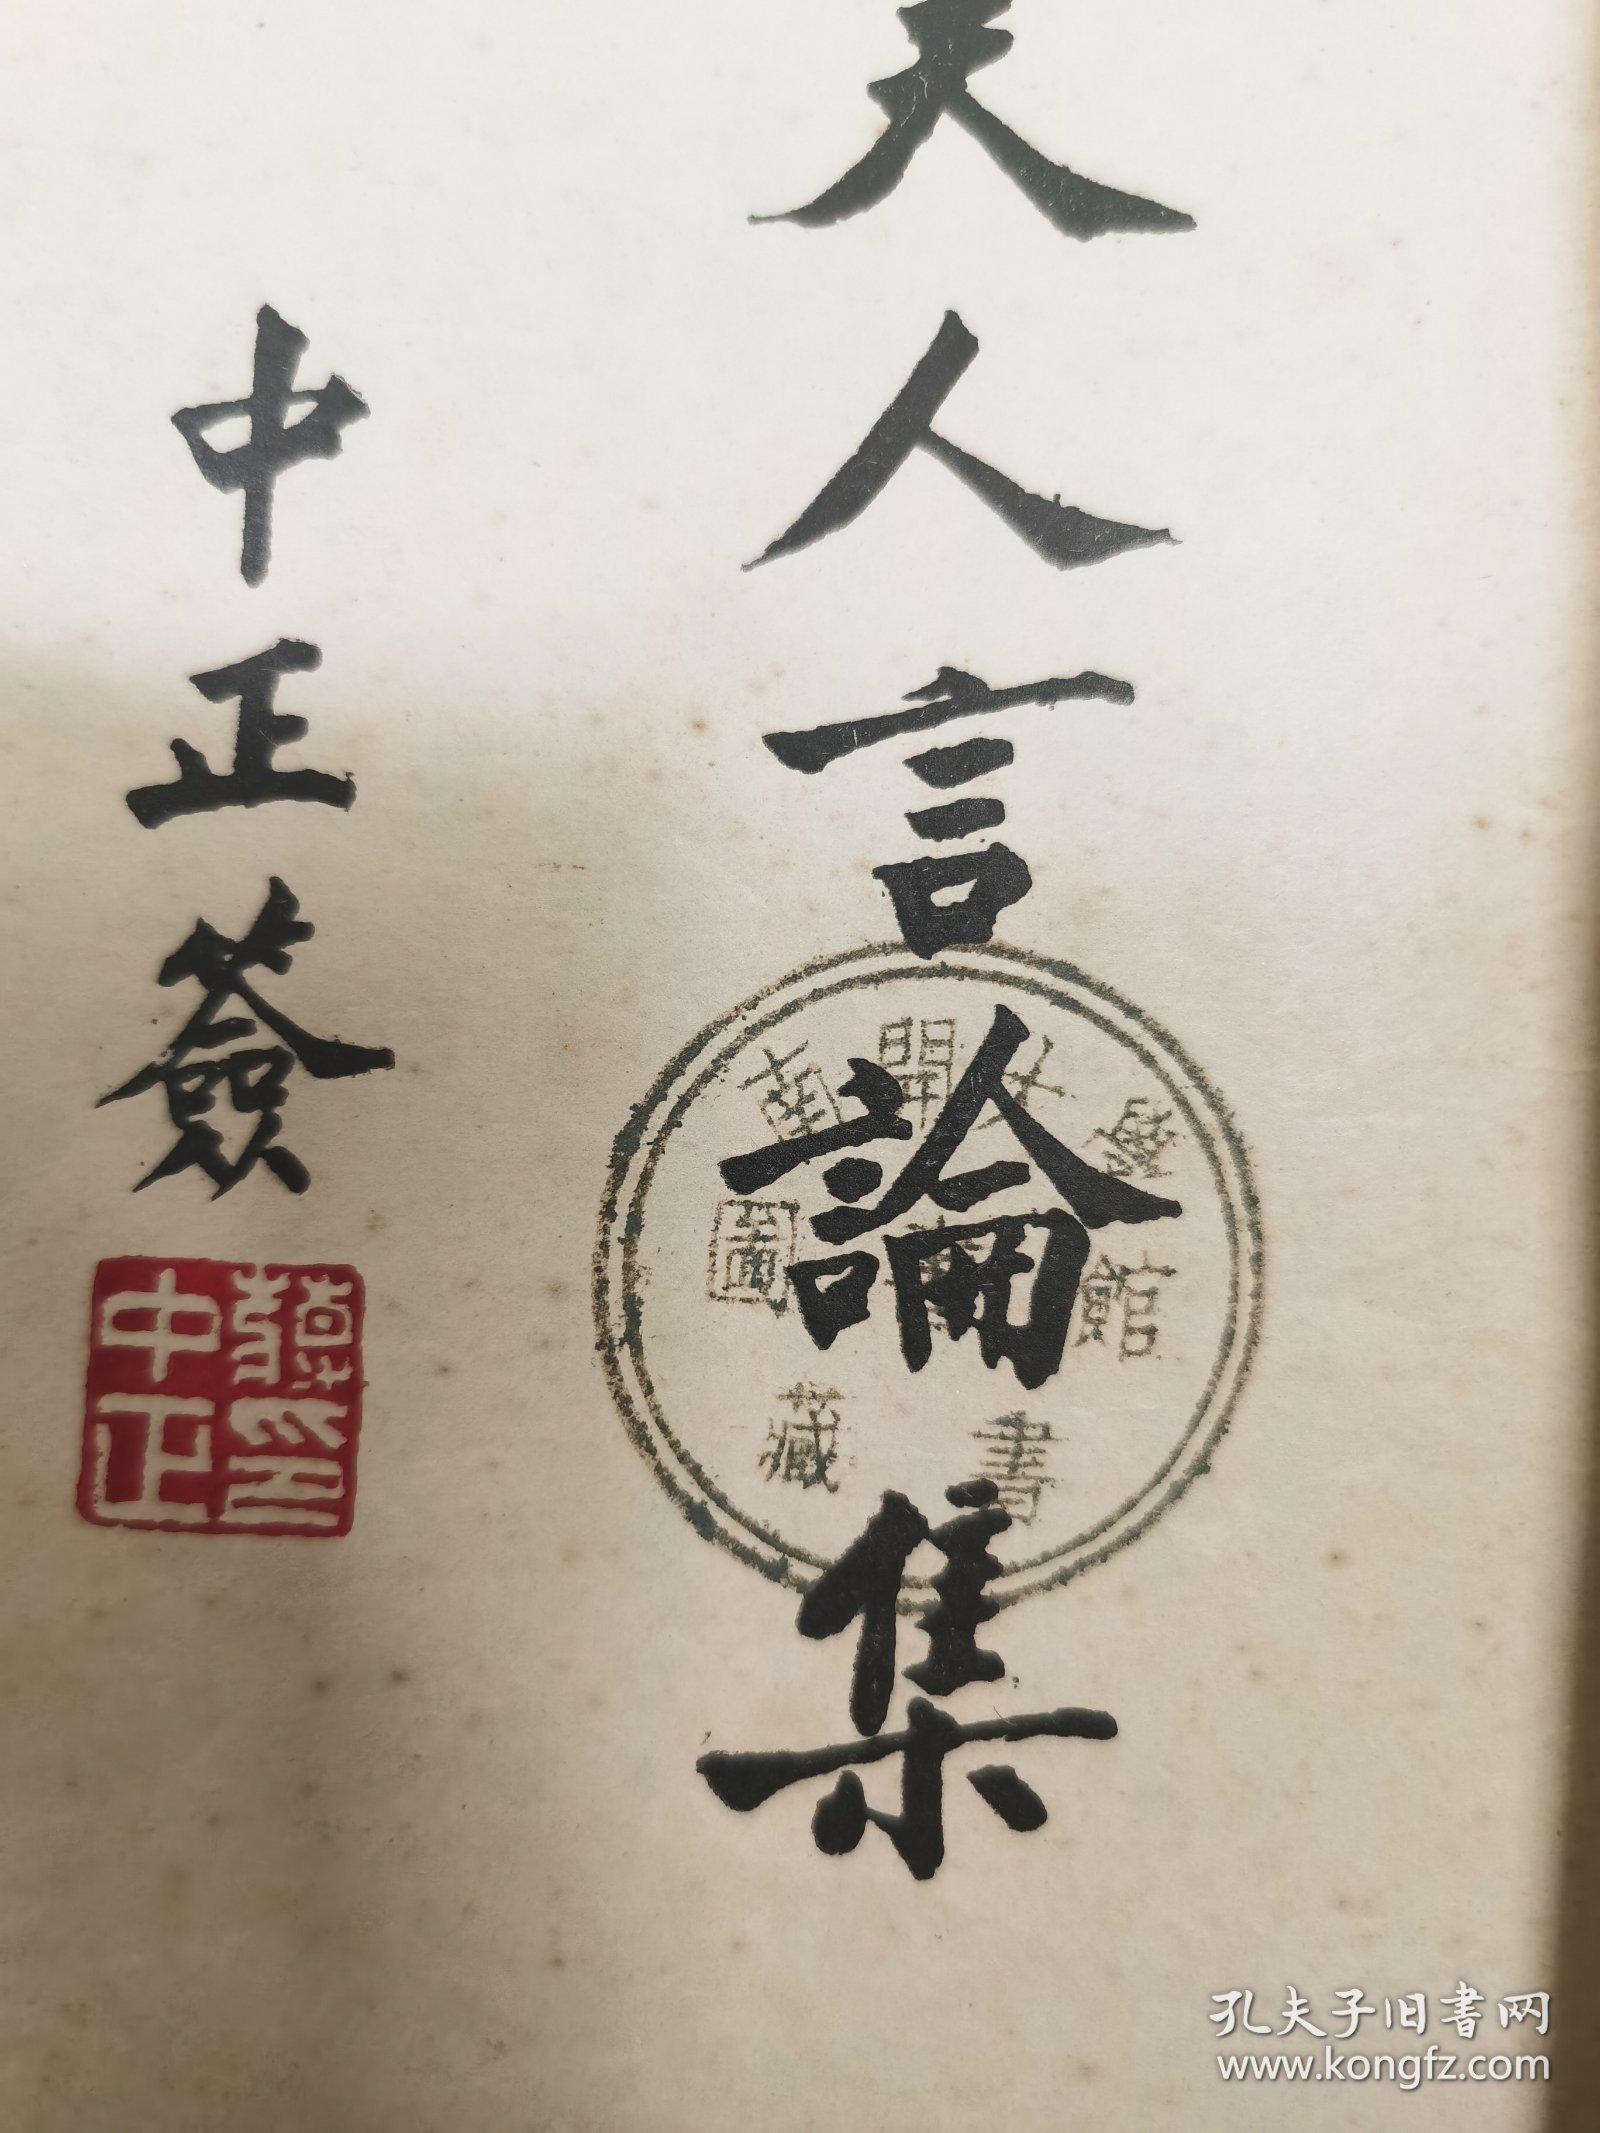 夫人言論集
中正簽
蔣中正印
南開大學
圖
館
藏書
孔夫子旧书网
www.kongfz.com